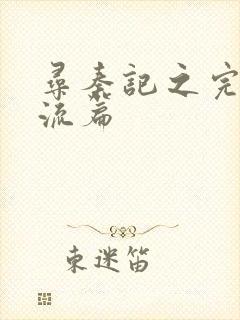 尋秦記之完
流篇
東迷笛